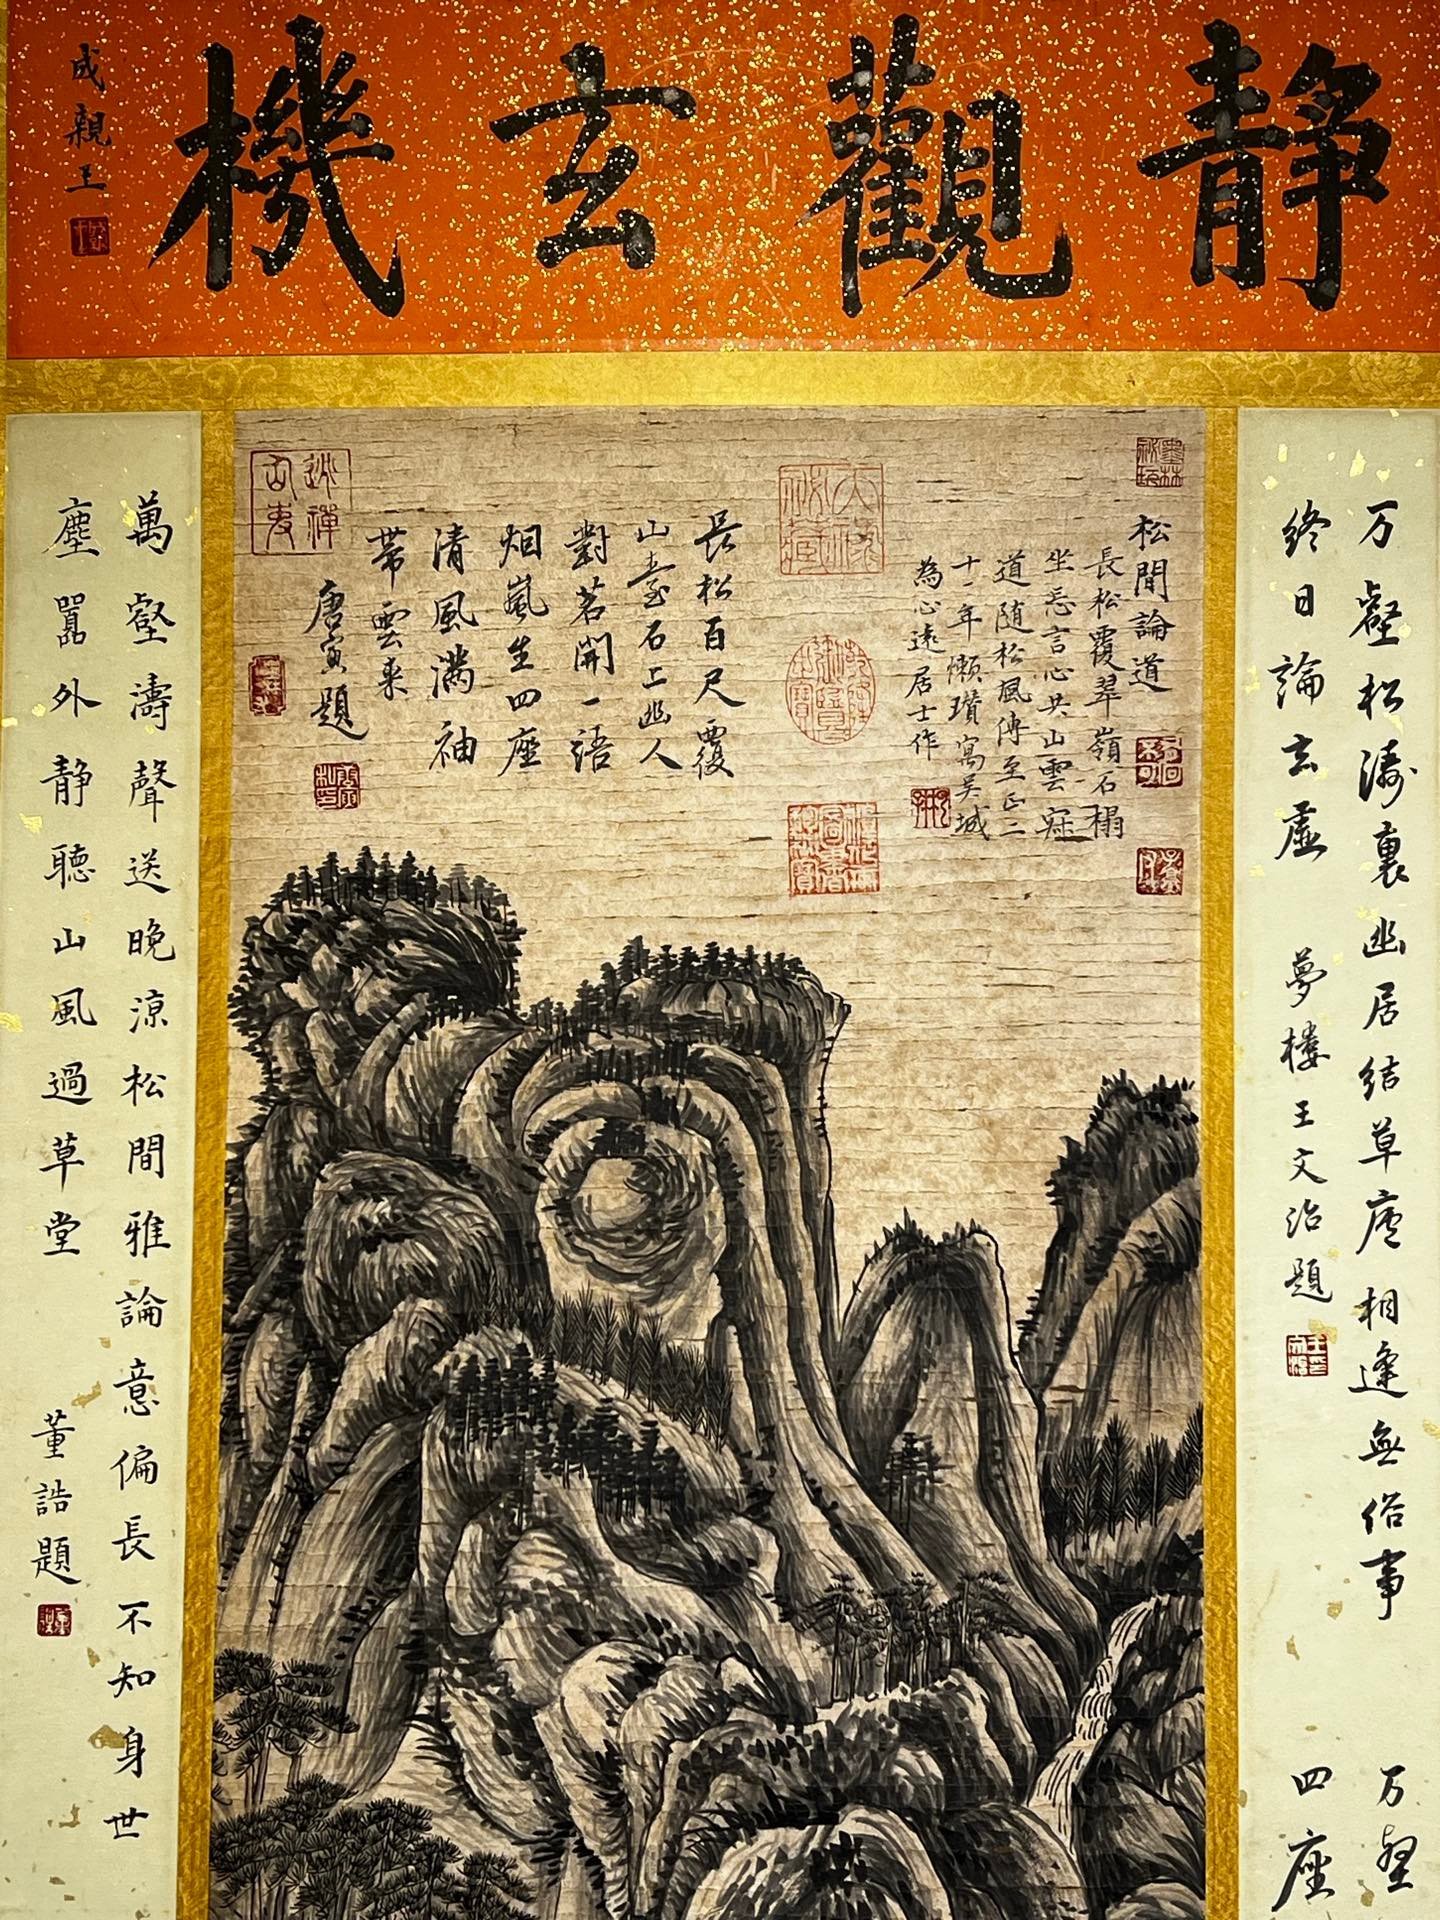 靜觀玄機
成親王
松間論道
長松覆翠嶺石榻
坐忘言心共山雲寂
道随松風傳至正二
十一年懶瓚寓吴城
為心遠居士作
長松百尺覆
山臺石上幽人
對茗開一語
烟嵐生四座
清風满袖
带雲来
唐寅題
万壑松濤裏幽居結草庐相逢無俗事
終日論玄虚
夢樓王文治題
万壑
四座
萬壑濤聲送晚涼松間雅論意偏長不知身世
塵囂外静聴山風過草堂
董誥題